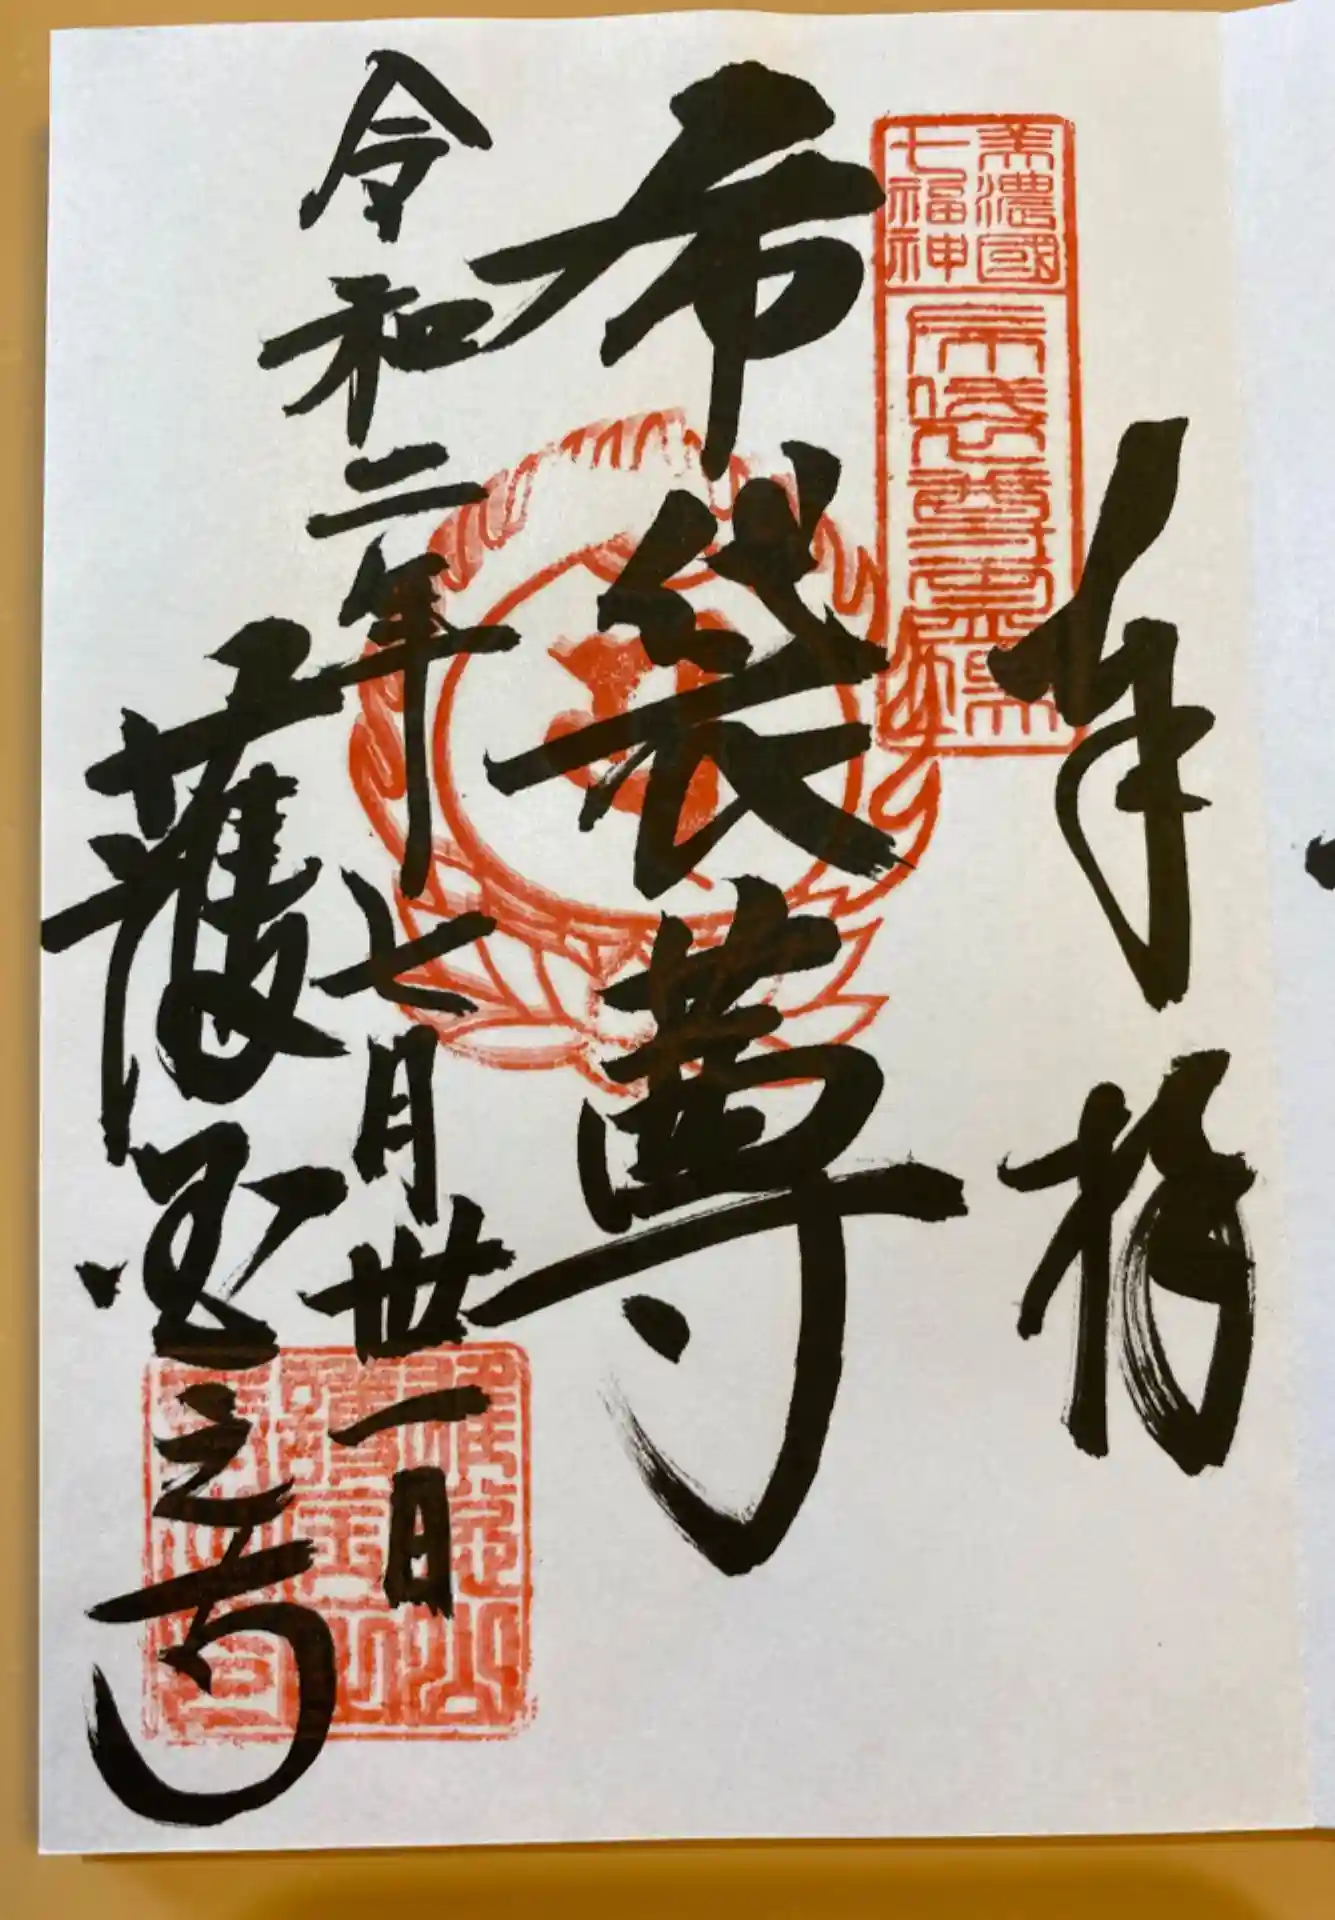 奉拝
美濃國
七福神
布袋尊霊場
布袋尊
令和二年七月丗一日
護国之寺